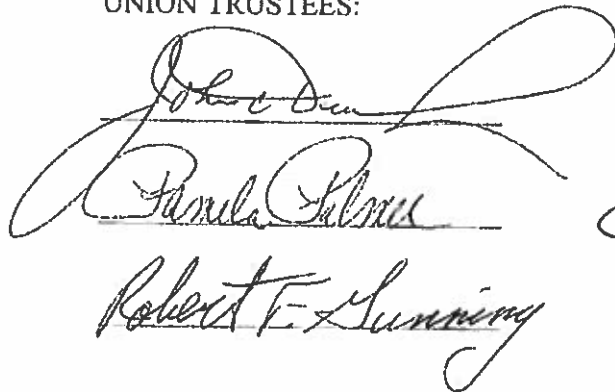 UNION TRUSTEES:
John C
Pamela Palmer
Robert F. Gunning